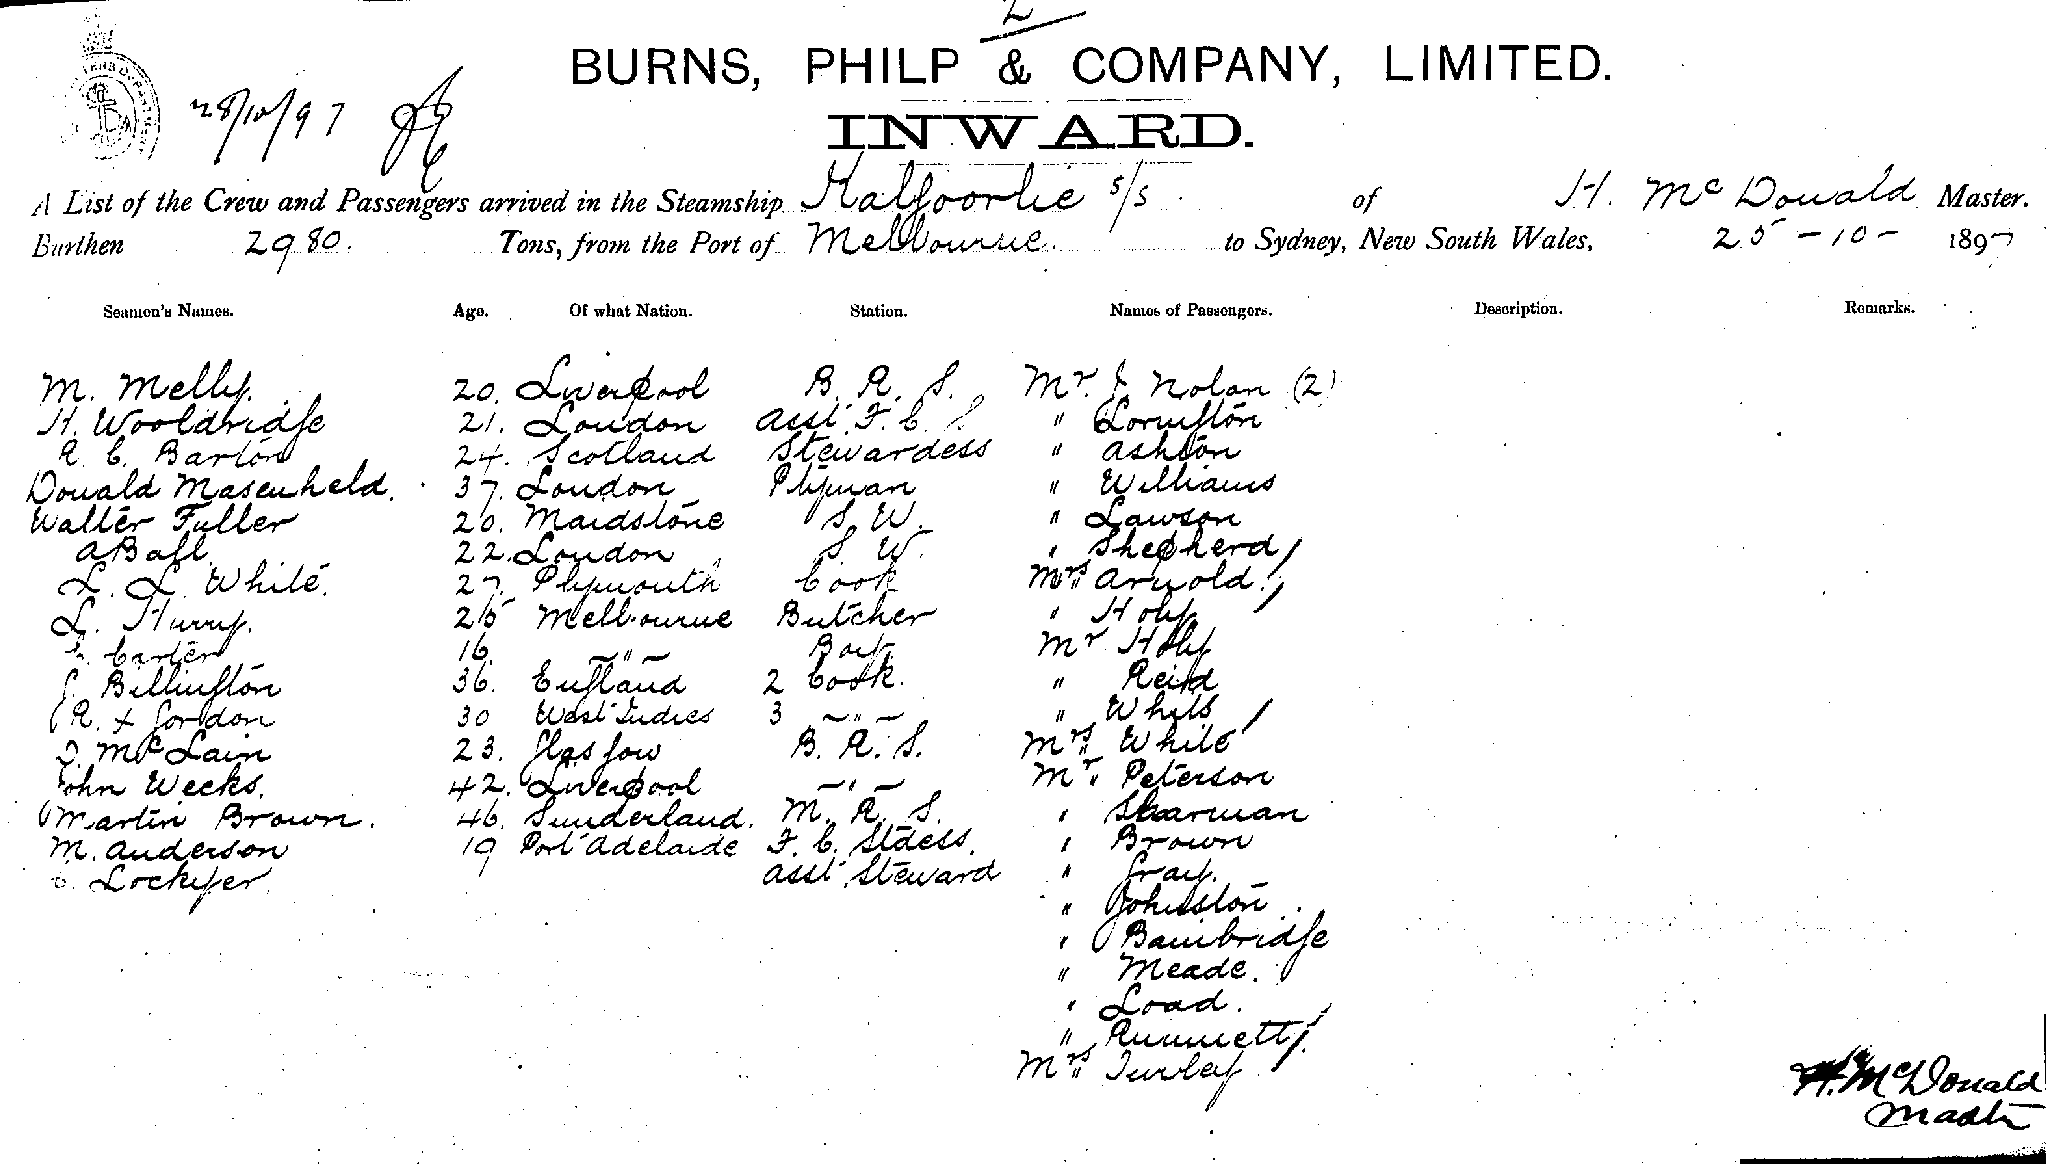 2
BURNS, PHILP & COMPANY, LIMITED.
28/10/97
INWARD.
A List of the Crew and Passengers arrived in the Steamship Kalgoorlie s/s of H. McDonald Master.
Burthen 2980. Tons, from the Port of Melbourne to Sydney, New South Wales, 25-10-1897
Seamen's Names. Age. Of what Nation. Station. Names of Passengers. Description. Remarks.
M. Melly. 20. Liverpool B. R. S. Mr. J. Nolan (2)
H. Wooldridge 21. London Asst. F. C. S " Lorington
R. C. Barton 24. Scotland Stewardess " Ashton
Donald 37. London " Williams
Walter Fuller 20. Maidstone S. W. " Lawson
A Ball 22. London S. W. " Shepherd
L. L. White. 27. Plymouth Cook Mrs Arnold
L. Hurry. 25 Melbourne Butcher " Holy
Carter 16 —"— Boy Mr Holy
J. Billington 36. England 2 Cook. " Reid
R. Gordon 30 West Indies 3 —"— " White
McLain 23. Glasgow B. R. S. Mrs White
John Weeks. 42. Liverpool —"— Mr. Peterson
Martin Brown. 46. Sunderland. M. R. S. " Sharman
M. Anderson 19 Port Adelaide F. C. Stdess. " Brown
Lockyer Asst. Steward " Gray.
" Johnston
" Bainbridge
" Meade.
" Load.
" Rummett
Mrs Turley
H. McDonald
Master